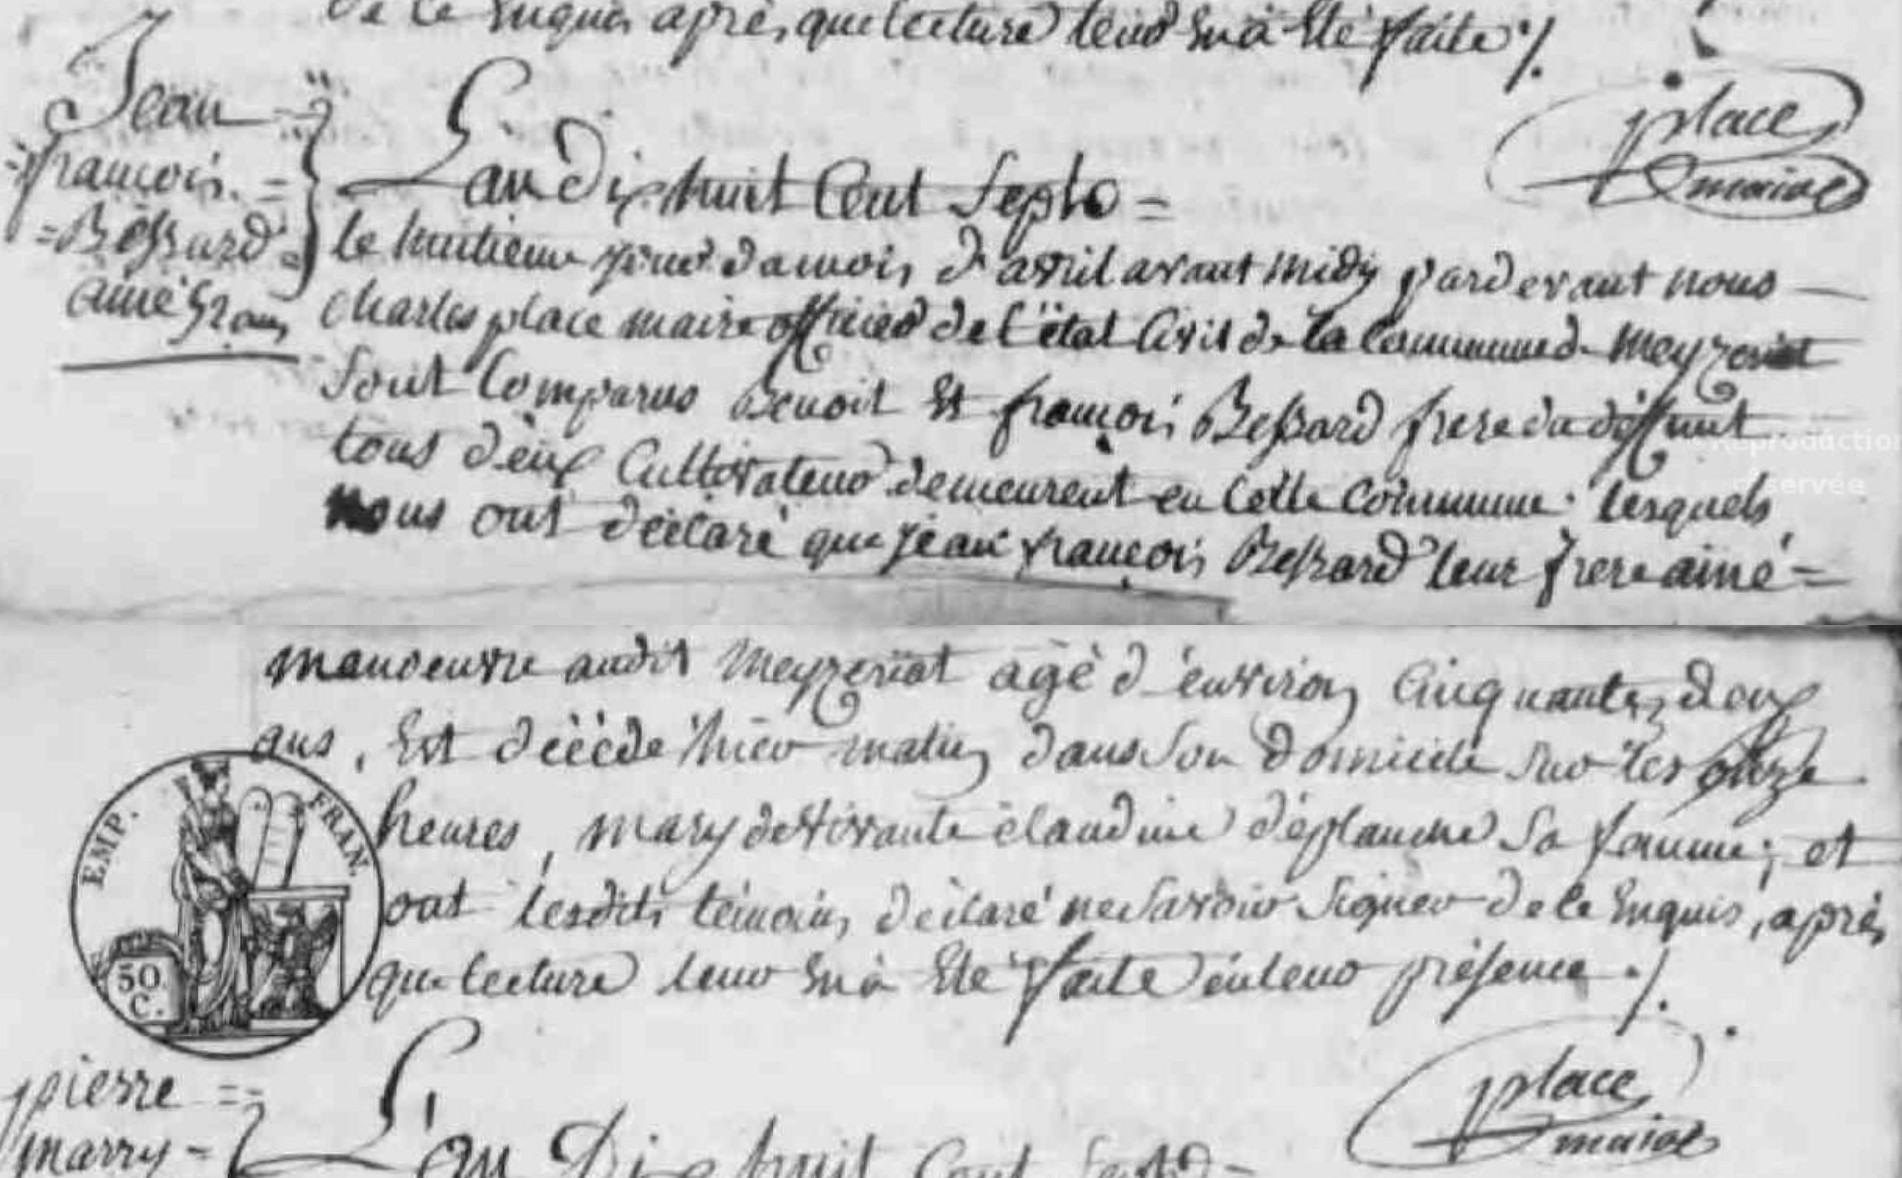 de ce Enquis après, que lecture leur En a Eté faite ./.
place
maire
Jean
françois
Bessard
ainé
L'an Dix huit Cent Septe
le huitieme jour du mois d'avril avant midy pardevant nous
charles place maire officier de l'état Civil de la Commune de Meyzeriat
sont Comparus Benoit Et françois Bessard frere du deffunt
tous deux Cultivateurs demeurent en Cette Commune. lesquels
nous ont déclaré que jean françois Bessard leur frere ainé
manoeuvre audit Meyzeriat agé d'environ Cinquante deux
ans, Est décédé hier matin dans son Domicile sur les onze
heures, mary devivante claudine déplanche Sa famme; et
ont lesdits témoins déclaré ne Savoir Signer de ce Enquis, après
que lecture leur En a Eté faite en leur présence ./.
EMP. FRAN.
50.
C.
place
maire
pierre
marry
L'an Dix huit Cent Septe